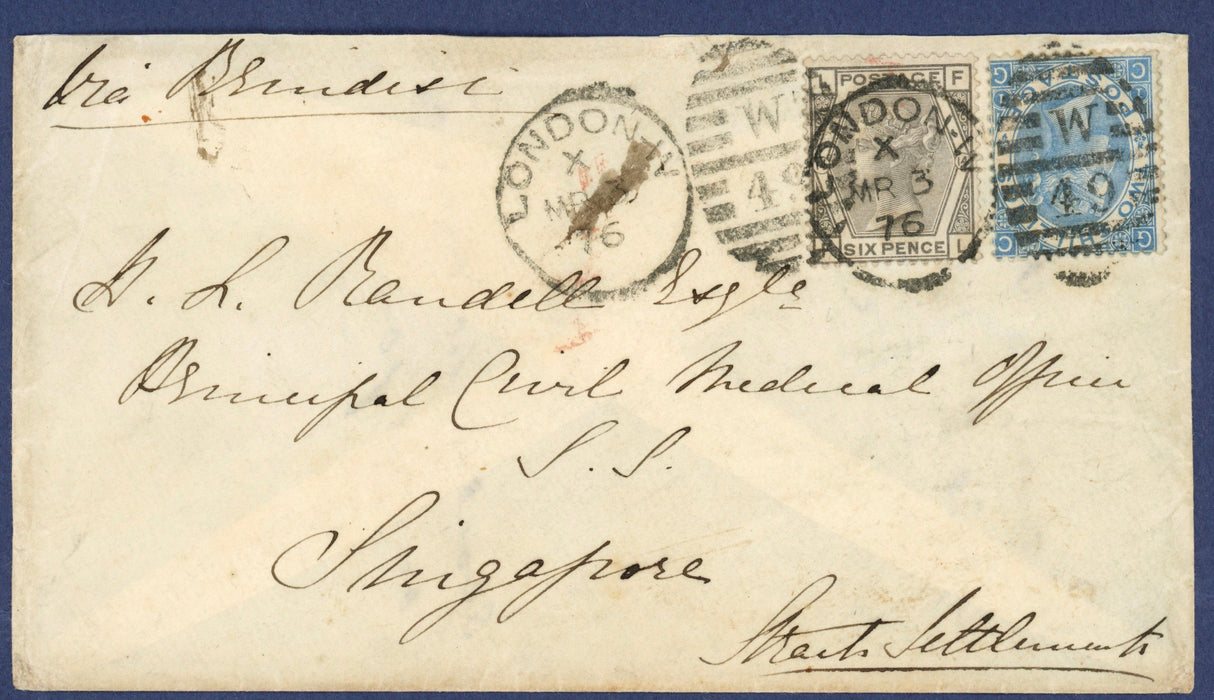 Via Brindisi
LONDON·W
X
MR 3
76
W
49
L POSTAGE F
LONDON·W
X
MR 3
76
SIX PENCE L
W
49
TWO
H. L. Randell Esqre
Principal Civil Medical Officer
S. S.
Singapore
Straits Settlements